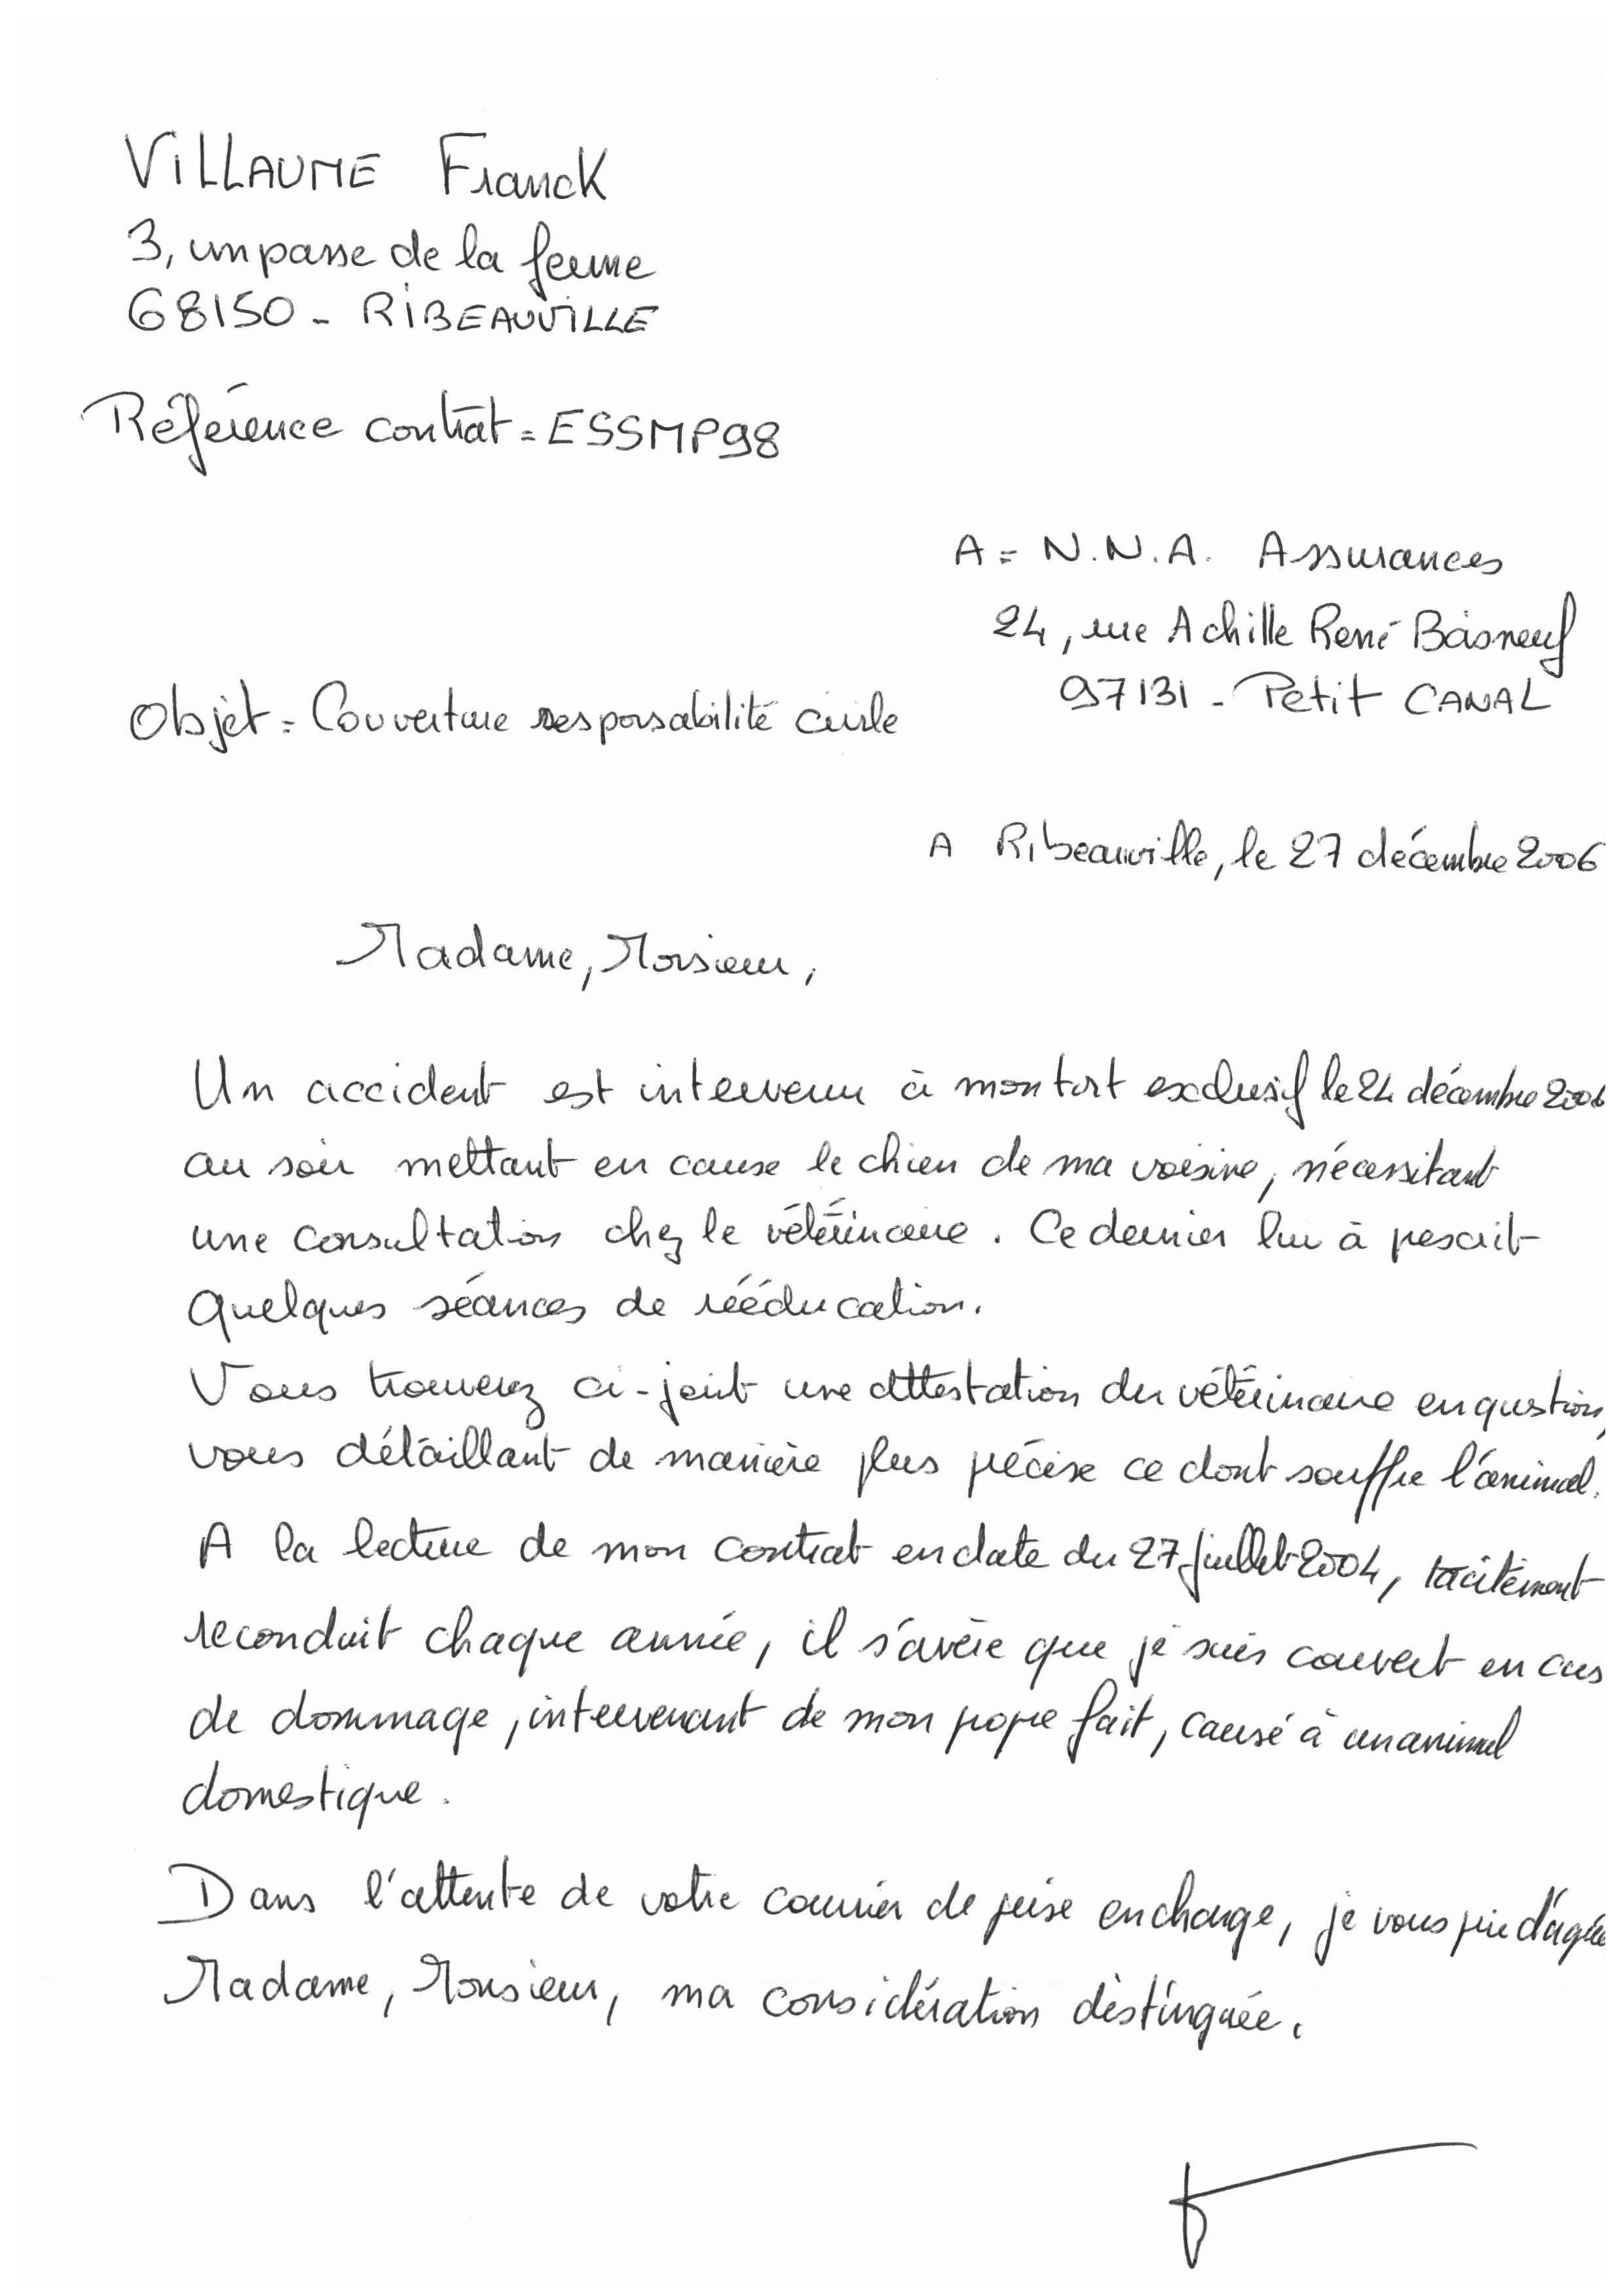 VILLAUME Franck
3, impasse de la ferme
68150 - RIBEAUVILLE
Référence contrat = ESSMP98
A = N.N.A. Assurances
24, rue Achille René Boisneuf
97131 - Petit CANAL
Objet = Couverture responsabilité civile
A Ribeauville, le 27 décembre 2006
Madame, Monsieur,
Un accident est intervenu à mon tort exclusif le 24 décembre 2006
au soir mettant en cause le chien de ma voisine, nécessitant
une consultation chez le vétérinaire. Ce dernier lui à prescrit
quelques séances de rééducation.
Vous trouverez ci-joint une attestation du vétérinaire en question,
vous détaillant de manière plus précise ce dont souffre l'animal.
A la lecture de mon contrat en date du 27 juillet 2004, tacitement
reconduit chaque année, il s'avère que je suis couvert en cas
de dommage, intervenant de mon propre fait, causé à un animal
domestique.
Dans l'attente de votre courrier de prise en charge, je vous prie d'agréer
Madame, Monsieur, ma considération distinguée.